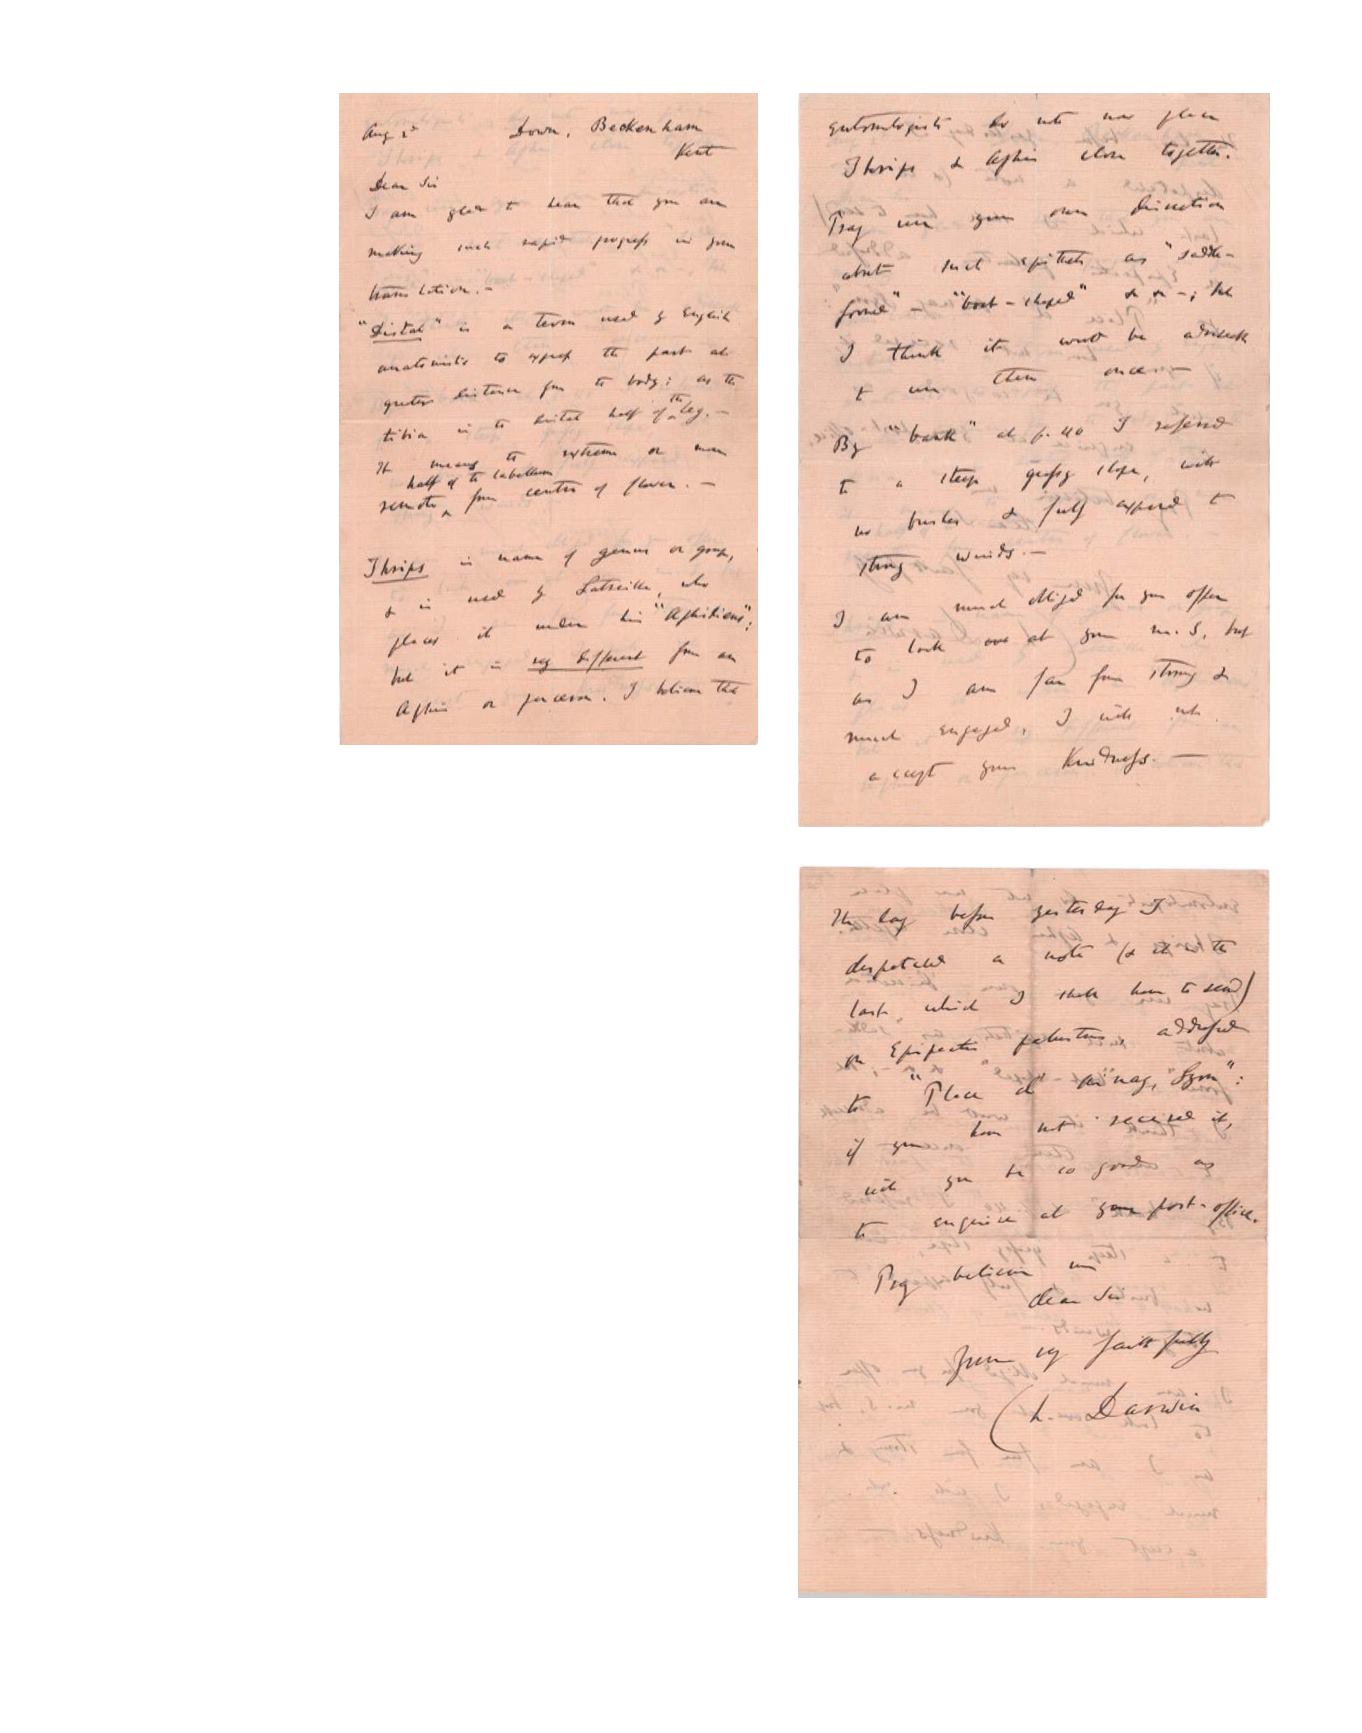 Aug 2d Down, Beckenham
Kent
Dear Sir
I am glad to hear that you are
making such rapid progress in your
translation.—
"Distal" is a term used by English
anatomists to express the part at
greatest distance from the body; as the
tibia is the distal half of the leg.—
It means the extreme or more
half of the labellum
remote ‸ from centre of flower.—
Thrips is name of genus or group,
& is used by Latreille, who
places it under his "Aphidiens";
but it is very different from an
Aphis or puceron. I believe that
entomologists do not now place
Thrips & Aphis close together.
Pray use your own discretion
about such epithets as "saddle-
formed"— "boat-shaped" & &—; but
I think it wd be advisable
to use them once—
By "bank" at p. 40 I referred
to a steep grassy slope, with
no bushes & fully exposed to
strong winds.—
I am much obliged for your offer
to look over at your M.S, but
as I am far from strong &
much engaged, I will not
accept your kindness.—
The day before yesterday I
despatched a note (& it is the
last, which I shall have to send)
on Epipactis palustris, addressed
to "Place d' ": 
if you have not received it,
will you be so good as
to enquire at your post-office.
Pray believe me
dear Sir
Yours very faithfully
Ch. Darwin